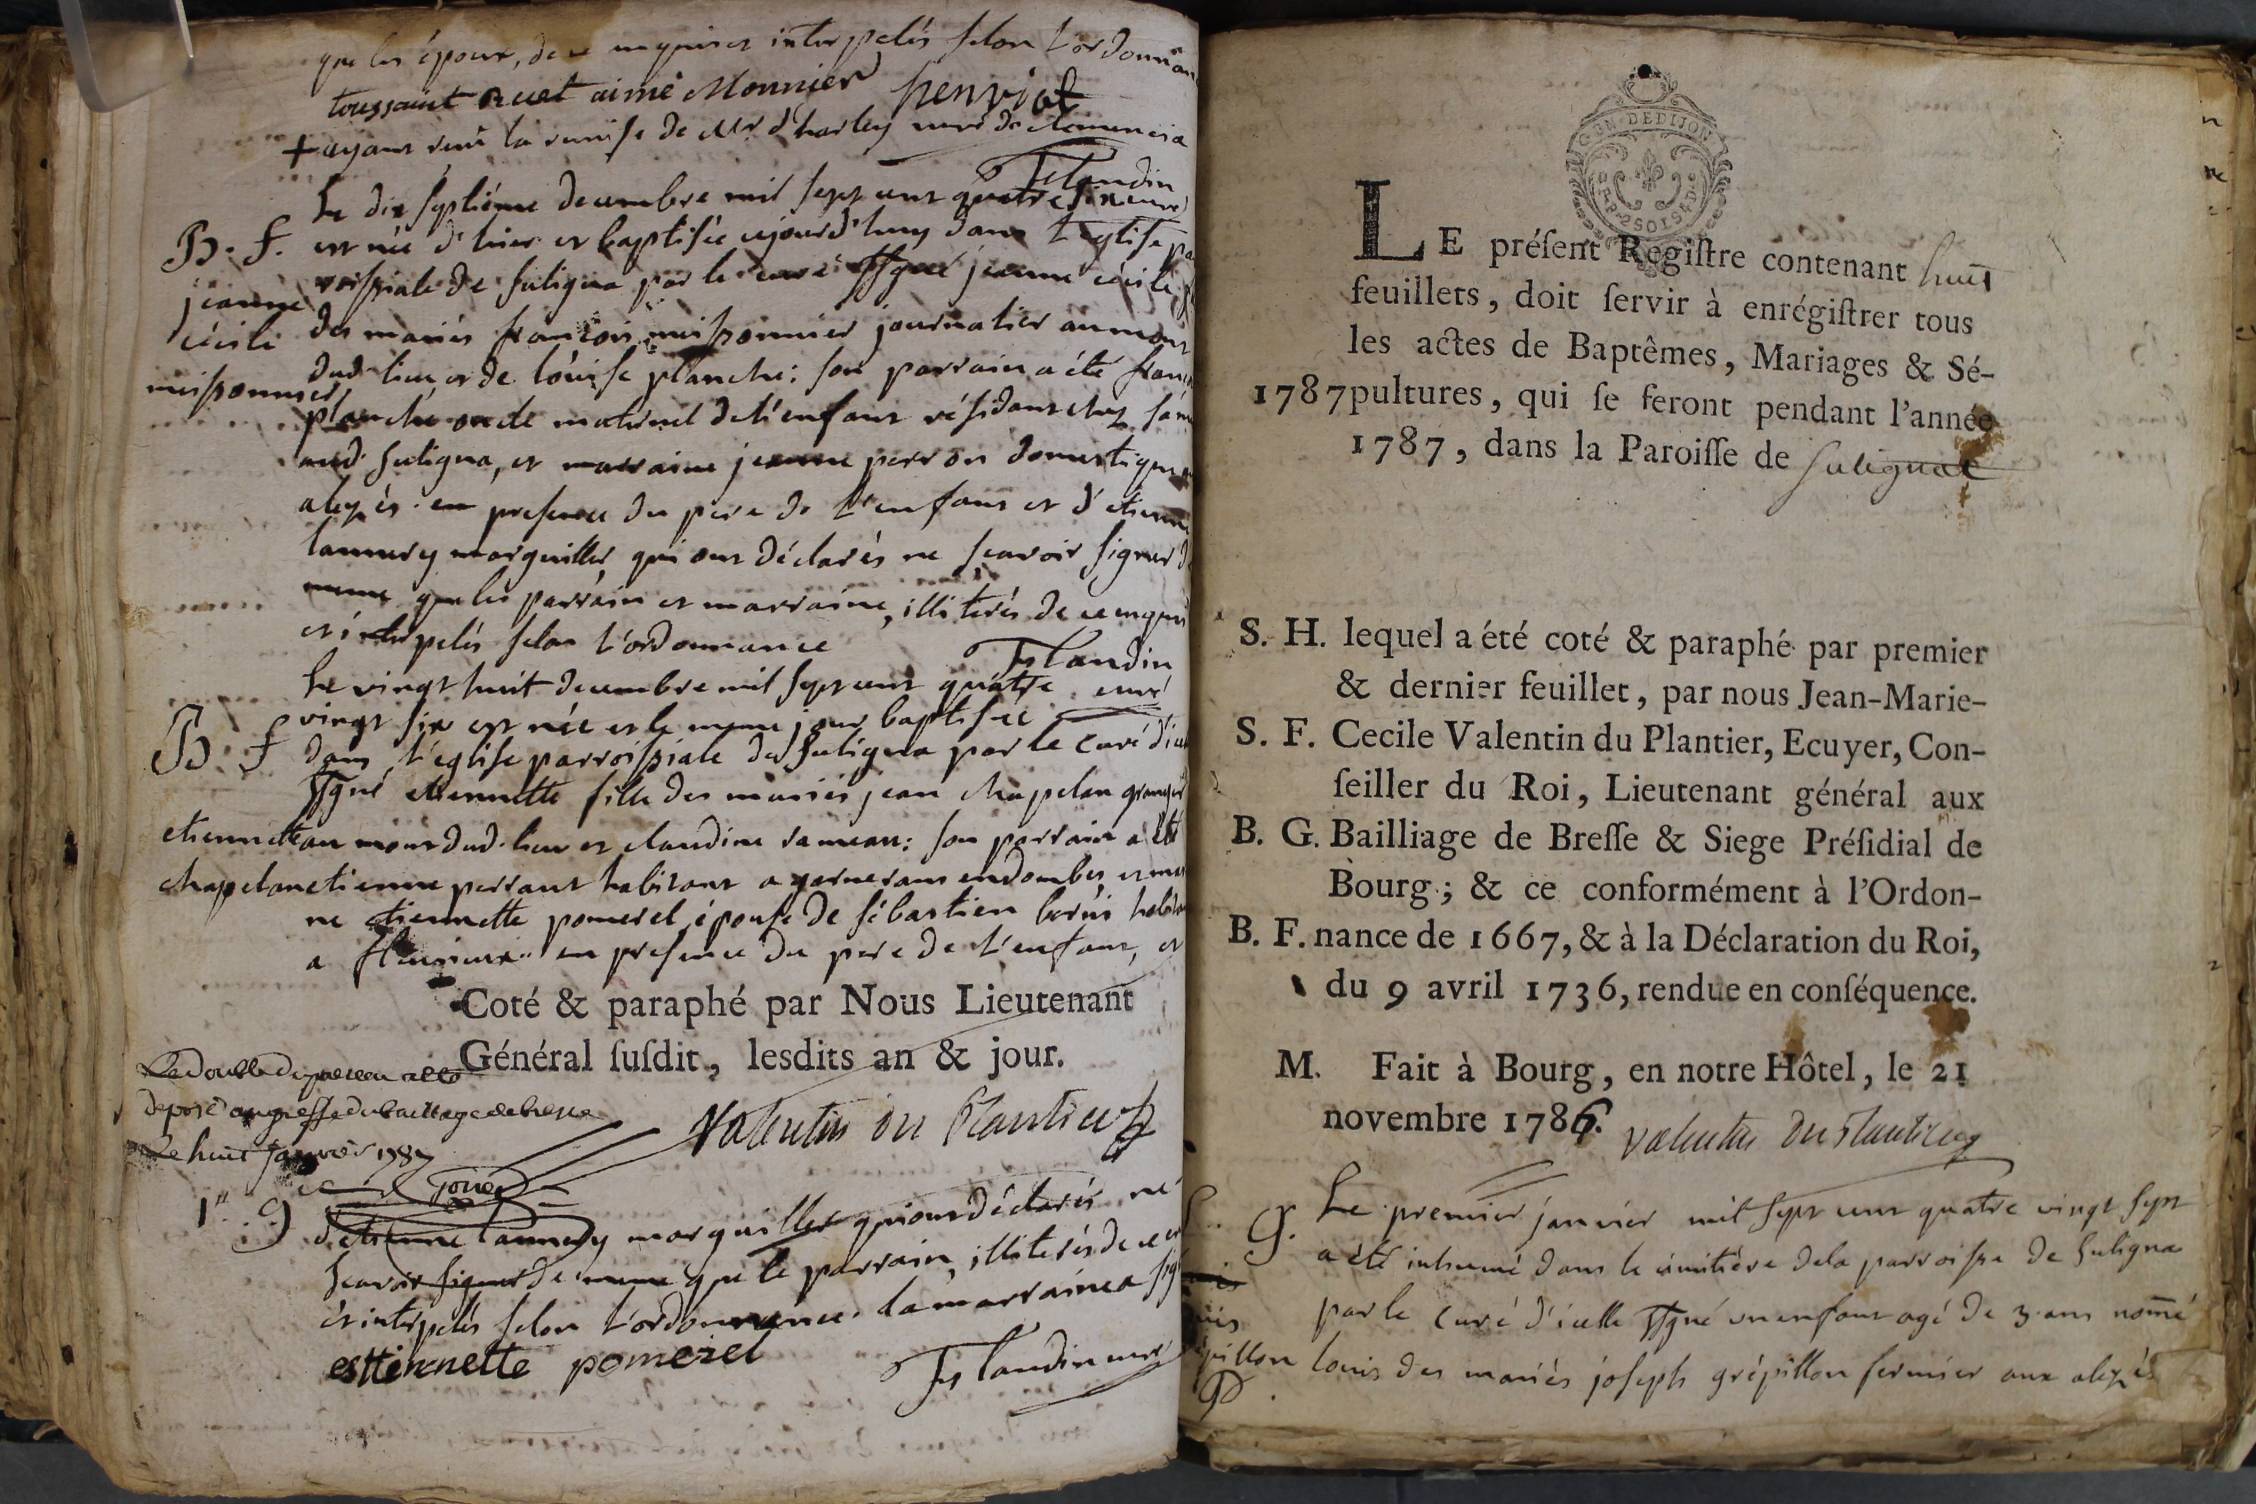 que les époux, de ce enquis et interpelés selon l'ordonnan
toussaint Ruet aimé Monnier henriot
+ ayant reçu la remise de Mr d'harley curé de clemencia
f s landin
curé
Le dix septiéme decembre mil sept cent quatre
B. f. est née d'hier et baptisée cejourd'huy dans l'église pa
roissiale de suligna par le curé ssgné jeanne cécile
jeanne
cécile
missonnier
des mariés françois missonnier journalier au mont
dud. lieu et de loüise planche: son parrain a été fran
planche oncle maternel de l'enfant résidant chez
aud. suligna, et marraine jeanne perron domestique
alezès. en presence du pere de l'enfant et d'etienne
lannery marguiller, qui ont déclarés ne scavoir signer d
meme que les parrain et marraine, illiterés de ce enquis
et interpelés selon l'ordonnance
f s landin
curé
Le vingt huit decembre mil sept cent quatre
vingt six est née et le meme jour baptisée
B. f dans l'église parroissiale de suligna par le curé d'icel
ssgné etiennette fille des mariés jean chapelan granger
etiennette
chapelan
au mont dud. lieu et claudine rameau: son parrain a été
etienne perraut habitant a garnerans en dombes et mar
ne etiennette pomerel épouse de sébastien habitan
a fleurieux.. en presence du pere de l'enfant, et
Coté & paraphé par Nous Lieutenant
Général ſuſdit, lesdits an & jour.
Le double du présent a été
deposé au greffe du bailliage de bresse
Le huit janvier 1787
Valentin du Plantier
d'etienne lannery marguiller qui ont déclarés ne
scavoir signer de meme que le parrain, illiterés de ce en
et interpelés selon l'ordonnance. la marraine a sig
esttiennette pomerel
f s landin curé
GEN. DE DIJON
LE préſent Regiſtre contenant huit
feuillets, doit ſervir à enrégiſtrer tous
les actes de Baptêmes, Mariages & Sé-
1787 pultures, qui ſe feront pendant l'année
1787, dans la Paroiſſe de Sulignat
S. H. lequel a été coté & paraphé par premier
& dernier feuillet, par nous Jean-Marie-
S. F. Cecile Valentin du Plantier, Ecuyer, Con-
ſeiller du Roi, Lieutenant général aux
B. G. Bailliage de Breſſe & Siege Préſidial de
Bourg; & ce conformément à l'Ordon-
B. F. nance de 1667, & à la Déclaration du Roi,
du 9 avril 1736, rendue en conſéquence.
M. Fait à Bourg, en notre Hôtel, le 21
novembre 1786.
Valentin du Plantier
G. Le premier janvier mil sept cent quatre vingt sept
a été inhumé dans le cimitière de la parroisse de suligna
par le curé d'icelle ssgné un enfant agé de 3 ans nomé
louis des mariés joseph grépillon fermier aux alezès